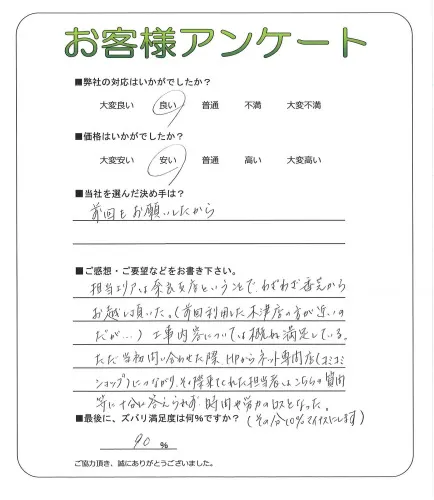 お客様アンケート
■弊社の対応はいかがでしたか？
大変良い 良い 普通 不満 大変不満
■価格はいかがでしたか？
大変安い 安い 普通 高い 大変高い
■当社を選んだ決め手は？
前回もお願いしたから
■ご感想・ご要望などをお書き下さい。
担当エリアは奈良支店ということで、わざわざ香芝から
お越し頂いた。(前回利用した木津店の方が近いの
だが…) 工事内容については概ね満足している。
ただ当初問い合わせた際、HPからネット専門店(コミコミ
ショップ)につながり、その際来てくれた担当者はこちらの質問
等に十分に答えられず、時間や労力のロスとなった。
■最後に、ズバリ満足度は何％ですか？ (その分10%マイナスにします)
90 ％
ご協力頂き、誠にありがとうございました。